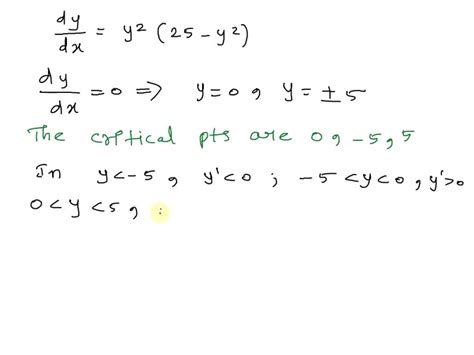 dy/dx = y² (25 - y²)
dy/dx = 0 => y = 0, y = ± 5
The critical pts are 0, -5, 5
In y < -5, y' < 0 ; -5 < y < 0, y' > 0
0 < y < 5,